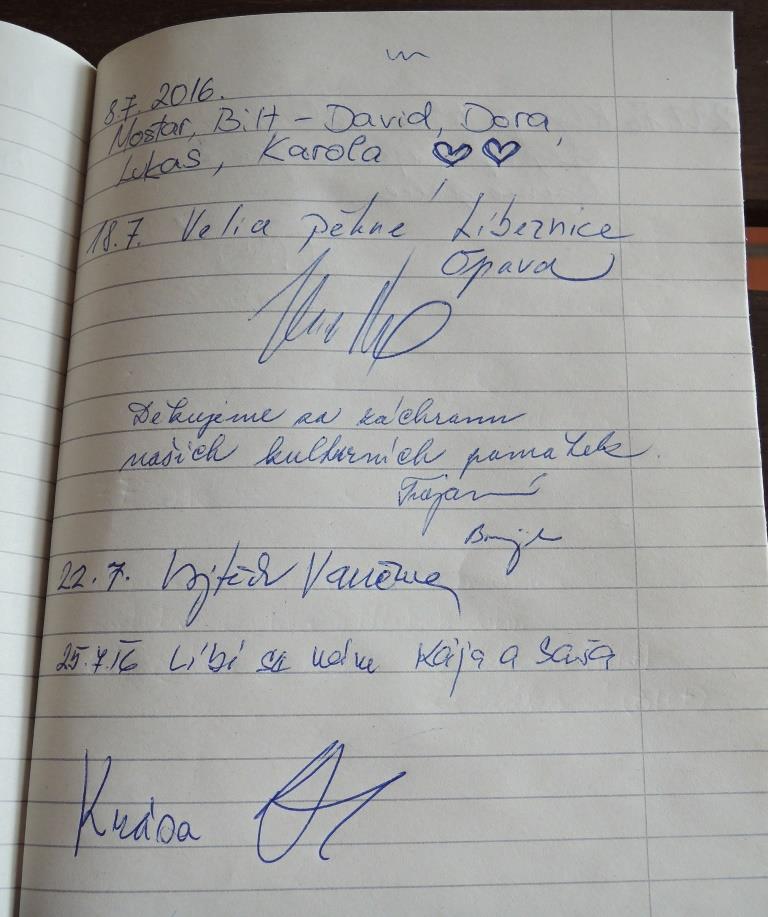 8.7. 2016.
Mostar, BiH - David, Dora,
Lukaš, Karola
18.7. Velia pěkné Líbeznice
Opava
Děkujeme za záchranu
našich kulturních památek.
Trojanovi
22.7. Vojtěch Vančura
25.7.16 Líbí se nám Kája a Saša
Krása